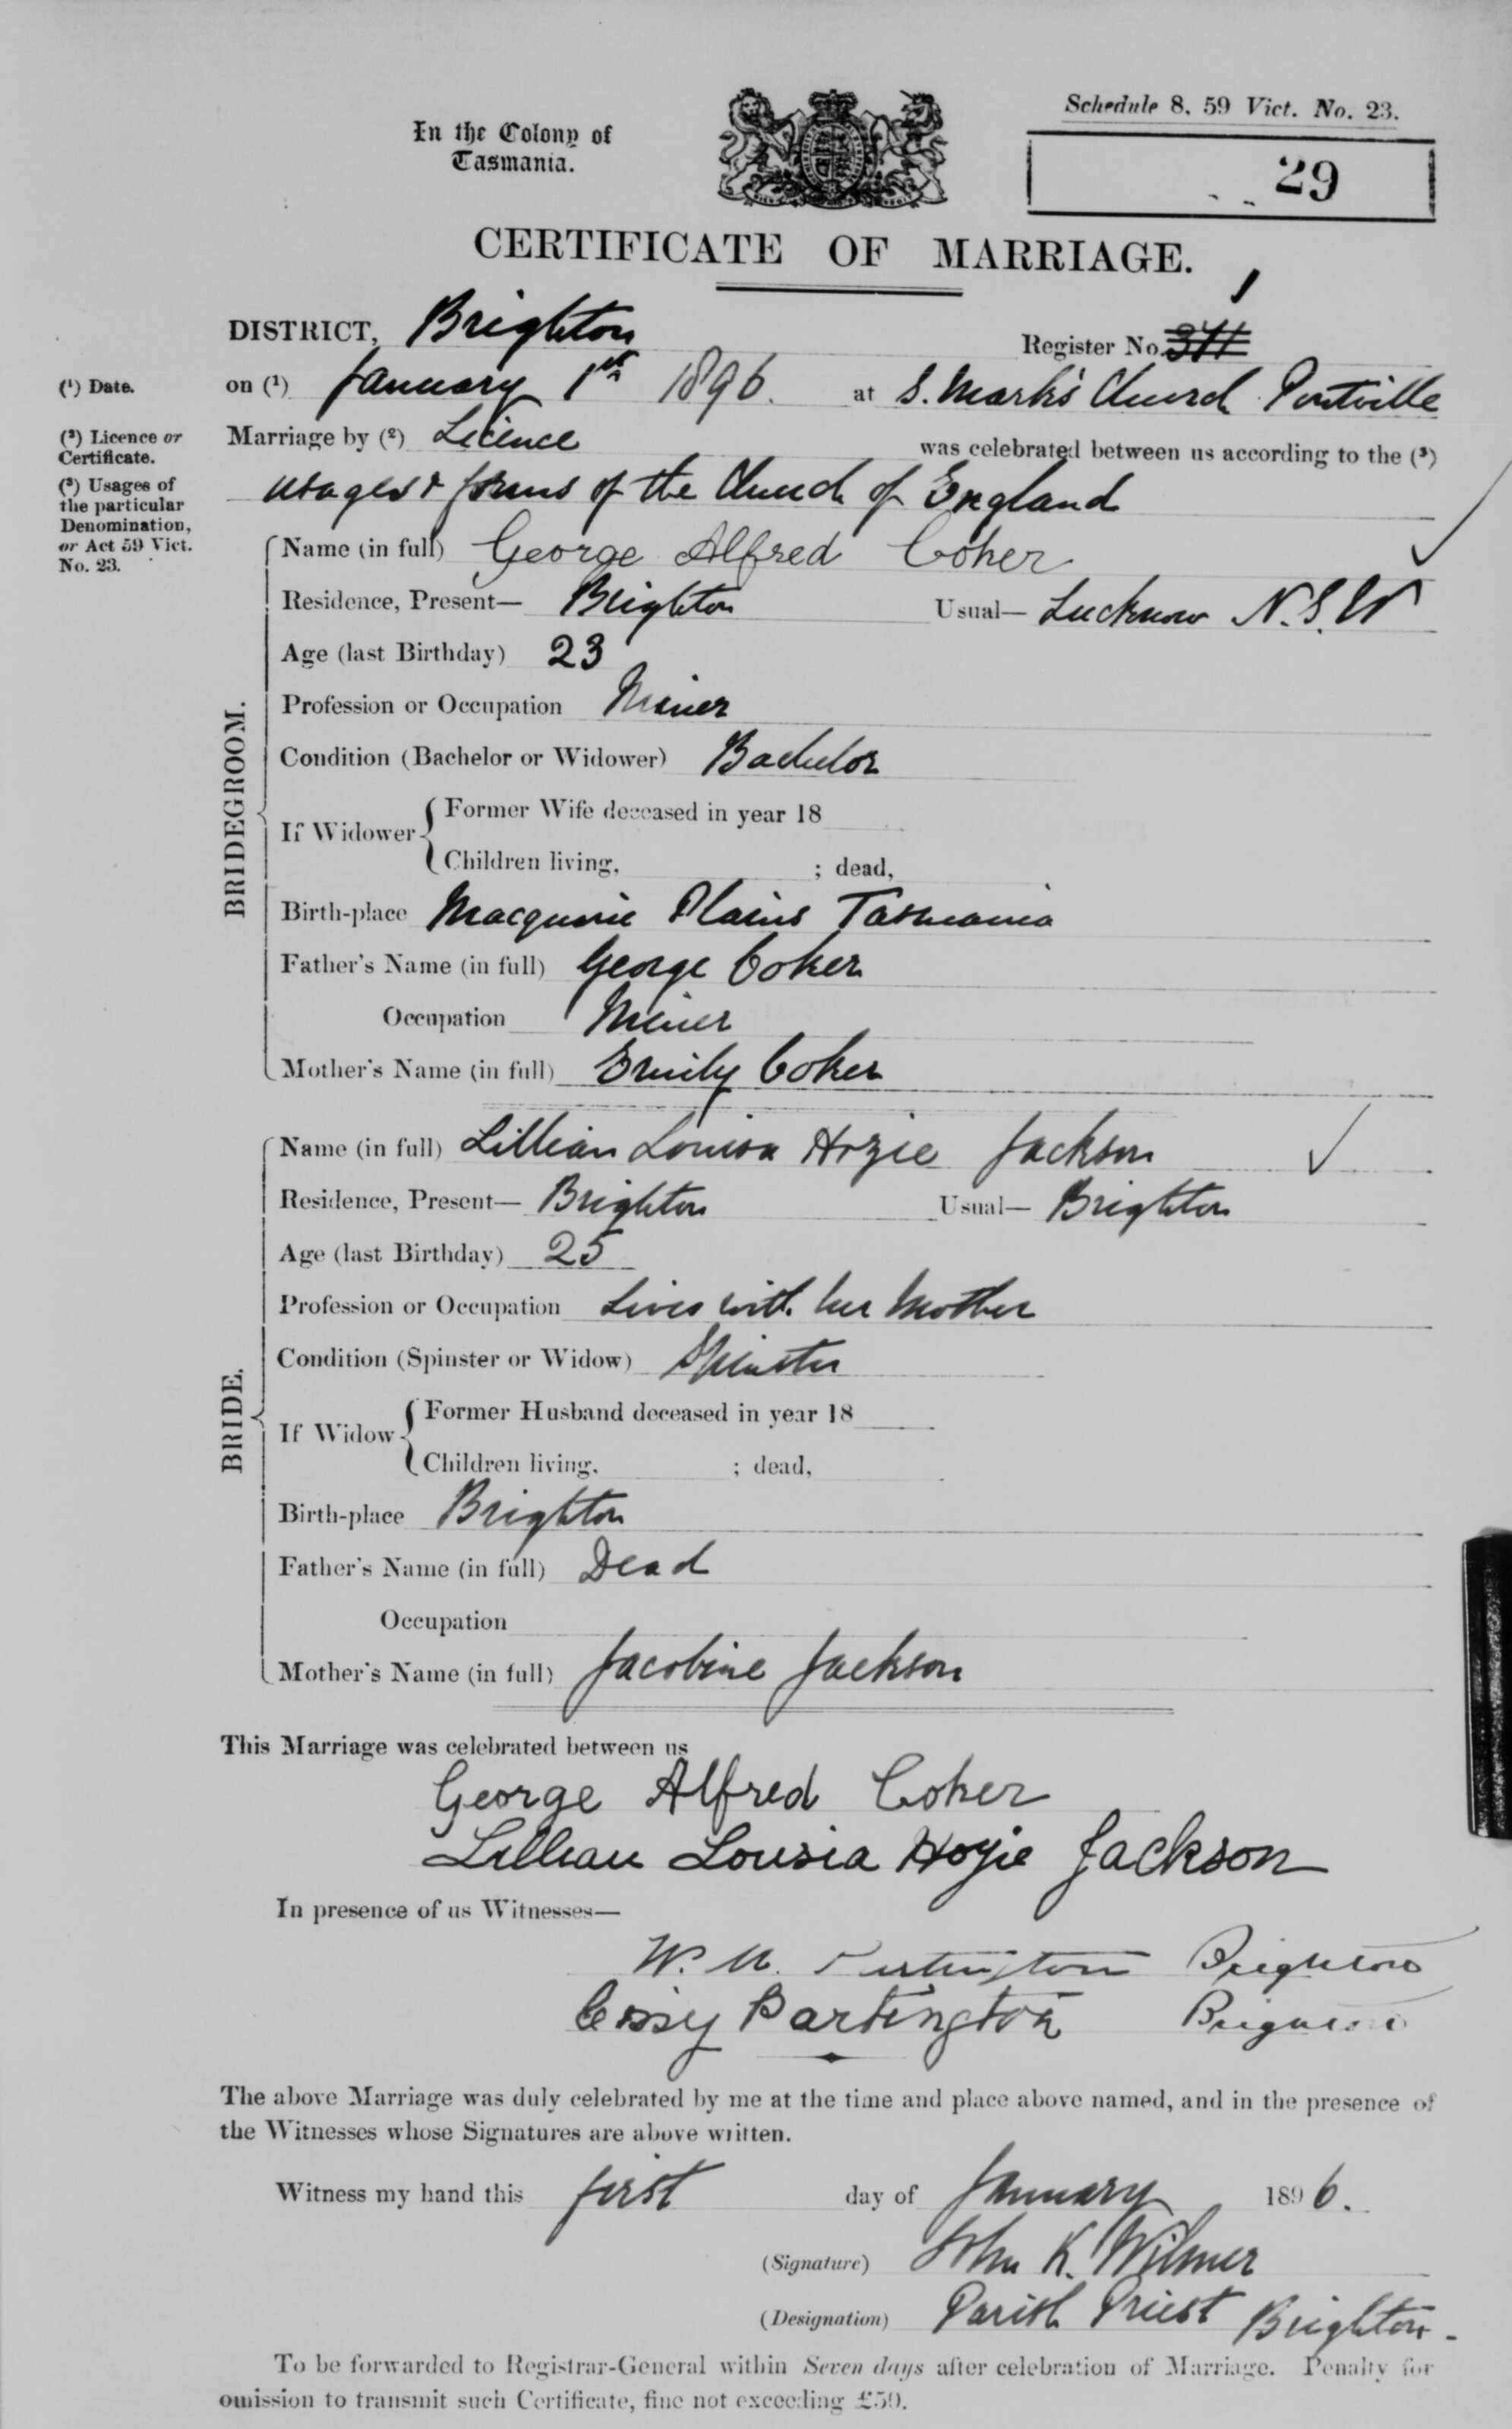 Schedule 8, 59 Vict. No. 23.
In the Colony of
Tasmania.
29
CERTIFICATE OF MARRIAGE.
1
DISTRICT, Brighton Register No. 311
(1) Date. on (1) January 1st 1896. at S. Mark's Church Pontville
(2) Licence or
Certificate.
Marriage by (2) Licence was celebrated between us according to the (3)
(3) Usages of
the particular
Denomination,
or Act 59 Vict.
No. 23.
usages & forms of the Church of England
BRIDEGROOM.
Name (in full) George Alfred Coker
Residence, Present— Brighton Usual— Lucknow N.S.W
Age (last Birthday) 23
Profession or Occupation Miner
Condition (Bachelor or Widower) Bachelor
If Widower
Former Wife deceased in year 18
Children living, ; dead,
Birth-place Macquarie Plains Tasmania
Father's Name (in full) George Coker
Occupation Miner
Mother's Name (in full) Emily Coker
BRIDE.
Name (in full) Lillian Louisa Hozie Jackson
Residence, Present— Brighton Usual— Brighton
Age (last Birthday) 25
Profession or Occupation Lives with her Mother
Condition (Spinster or Widow) Spinster
If Widow
Former Husband deceased in year 18
Children living, ; dead,
Birth-place Brighton
Father's Name (in full) Dead
Occupation
Mother's Name (in full) Jacobine Jackson
This Marriage was celebrated between us
George Alfred Coker
Lillian Lousia Hozie Jackson
In presence of us Witnesses—
W. Partington Brighton
Cissy Partington Brighton
The above Marriage was duly celebrated by me at the time and place above named, and in the presence of
the Witnesses whose Signatures are above written.
Witness my hand this first day of January 1896.
(Signature) John K. Wilmer
(Designation) Parish Priest Brighton.
To be forwarded to Registrar-General within Seven days after celebration of Marriage. Penalty for
omission to transmit such Certificate, fine not exceeding £50.